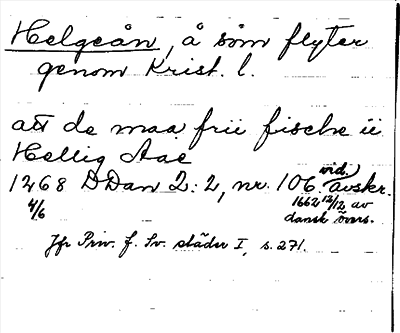 Helgeån, å som flyter
genom Krist. l.
att de maa frii fische ii
Hellig Aae
1268 DDan 2:2, nr. 106. vid. avskr.
4/6 1662 12/12 av
dansk övers.
Jfr Priv. f. Sv. städer I, s. 271.